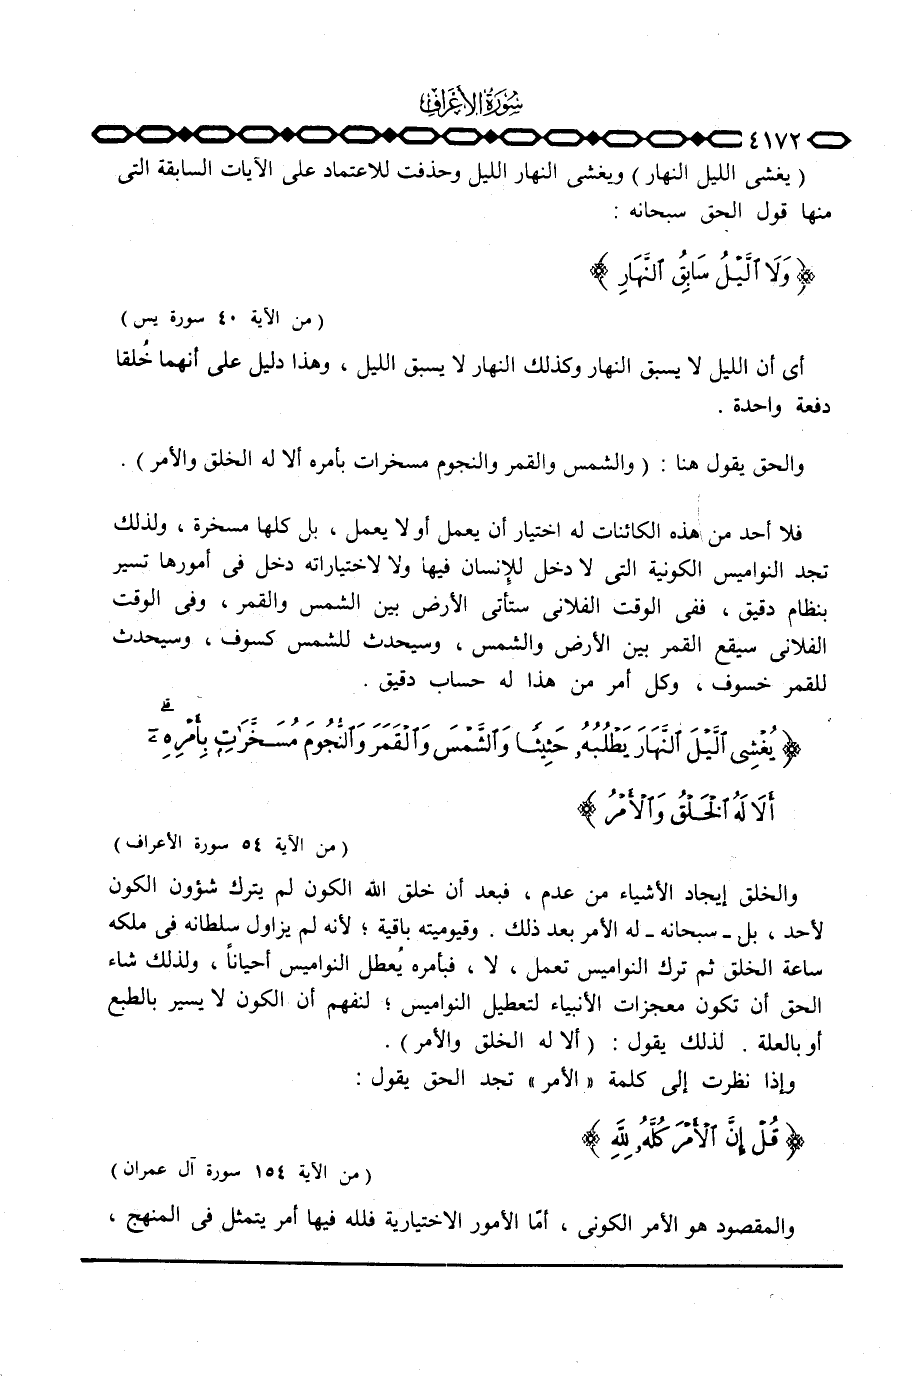 سورة الأعراف
٤١٧٢
( يغشى الليل النهار ) ويغشى النهار الليل وحذفت للاعتماد على الآيات السابقة التى
منها قول الحق سبحانه :
﴿ وَلَا ٱلَّيْلُ سَابِقُ ٱلنَّهَارِ ﴾
( من الآية ٤٠ سورة يس )
أى أن الليل لا يسبق النهار وكذلك النهار لا يسبق الليل ، وهذا دليل على أنهما خُلقا
دفعة واحدة .
والحق يقول هنا : ( والشمس والقمر والنجوم مسخرات بأمره ألا له الخلق والأمر ) .
فلا أحد من هذه الكائنات له اختيار أن يعمل أو لا يعمل ، بل كلها مسخرة ، ولذلك
تجد النواميس الكونية التى لا دخل للإنسان فيها ولا لاختياراته دخل فى أمورها تسير
بنظام دقيق ، ففى الوقت الفلانى ستأتى الأرض بين الشمس والقمر ، وفى الوقت
الفلانى سيقع القمر بين الأرض والشمس ، وسيحدث للشمس كسوف ، وسيحدث
للقمر خسوف ، وكل أمر من هذا له حساب دقيق .
﴿ يُغْشِى ٱلَّيْلَ ٱلنَّهَارَ يَطْلُبُهُۥ حَثِيثًا وَٱلشَّمْسَ وَٱلْقَمَرَ وَٱلنُّجُومَ مُسَخَّرَٰتٍۭ بِأَمْرِهِۦٓ ۗ
أَلَا لَهُ ٱلْخَلْقُ وَٱلْأَمْرُ ﴾
( من الآية ٥٤ سورة الأعراف )
والخلق إيجاد الأشياء من عدم ، فبعد أن خلق الله الكون لم يترك شؤون الكون
لأحد ، بل ـ سبحانه ـ له الأمر بعد ذلك . وقيوميته باقية ؛ لأنه لم يزاول سلطانه فى ملكه
ساعة الخلق ثم ترك النواميس تعمل ، لا ، فبأمره يُعطل النواميس أحياناً ، ولذلك شاء
الحق أن تكون معجزات الأنبياء لتعطيل النواميس ؛ لنفهم أن الكون لا يسير بالطبع
أو بالعلة . لذلك يقول : ( ألا له الخلق والأمر ) .
وإذا نظرت إلى كلمة « الأمر » تجد الحق يقول :
﴿ قُلْ إِنَّ ٱلْأَمْرَ كُلَّهُۥ لِلَّهِ ﴾
( من الآية ١٥٤ سورة آل عمران )
والمقصود هو الأمر الكونى ، أمّا الأمور الاختيارية فلله فيها أمر يتمثل فى المنهج ،